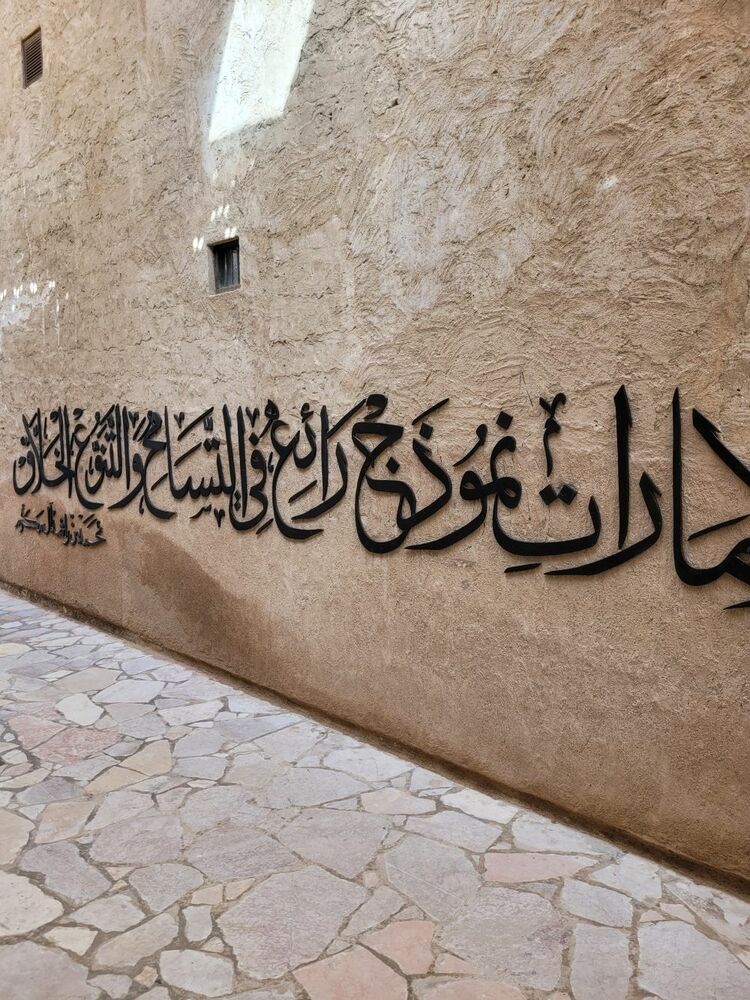 لإمارات نموذج رائع في التسامح والتنوع الخلاق
محمد بن راشد آل مكتوم